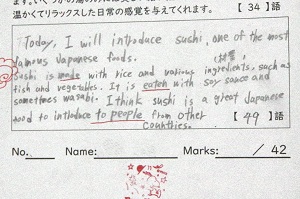 温かくてリラックスした日常の感覚を与えてくれます。 【 34 】語
Today, I will introduce sushi, one of the most
famous Japanese foods. (材料)
Sushi is made with rice and various ingredients, such as
fish and vegetables. It is eaten with soy sauce and
sometimes wasabi. I think sushi is a great Japanese
food to introduce to people from other
countries. 【 49 】語
No. Name: Marks: / 42